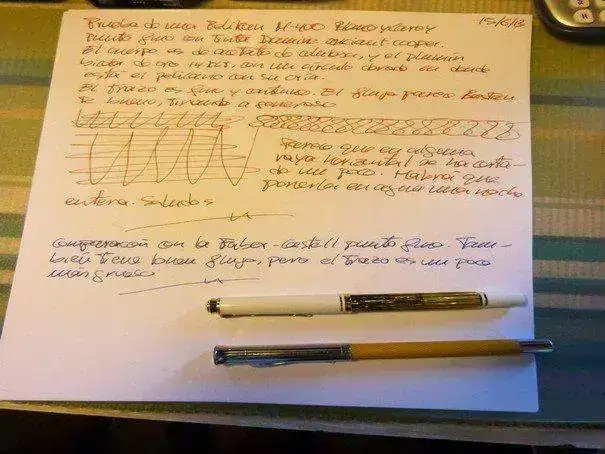 Prueba de una Pelikan M-400 Blanco y carey
punto fino con tinta Diamine ancient cooper.
El cuerpo es de acetato de celulosa, y el plumín
bicolor de oro 14 Kt, con un círculo dorado en donde
está el pelícano con su cría.
El trazo es fino y continuo. El flujo parece bastan
te bueno, tirando a generoso
Parece que en alguna
raya horizontal se ha corta-
do un poco. Habrá que
ponerla en agua una noche
entera. Saludos
15/6/13
comparación con la Faber-Castell punto fino. Tam-
bién tiene buen flujo, pero el trazo es un poco
más grueso